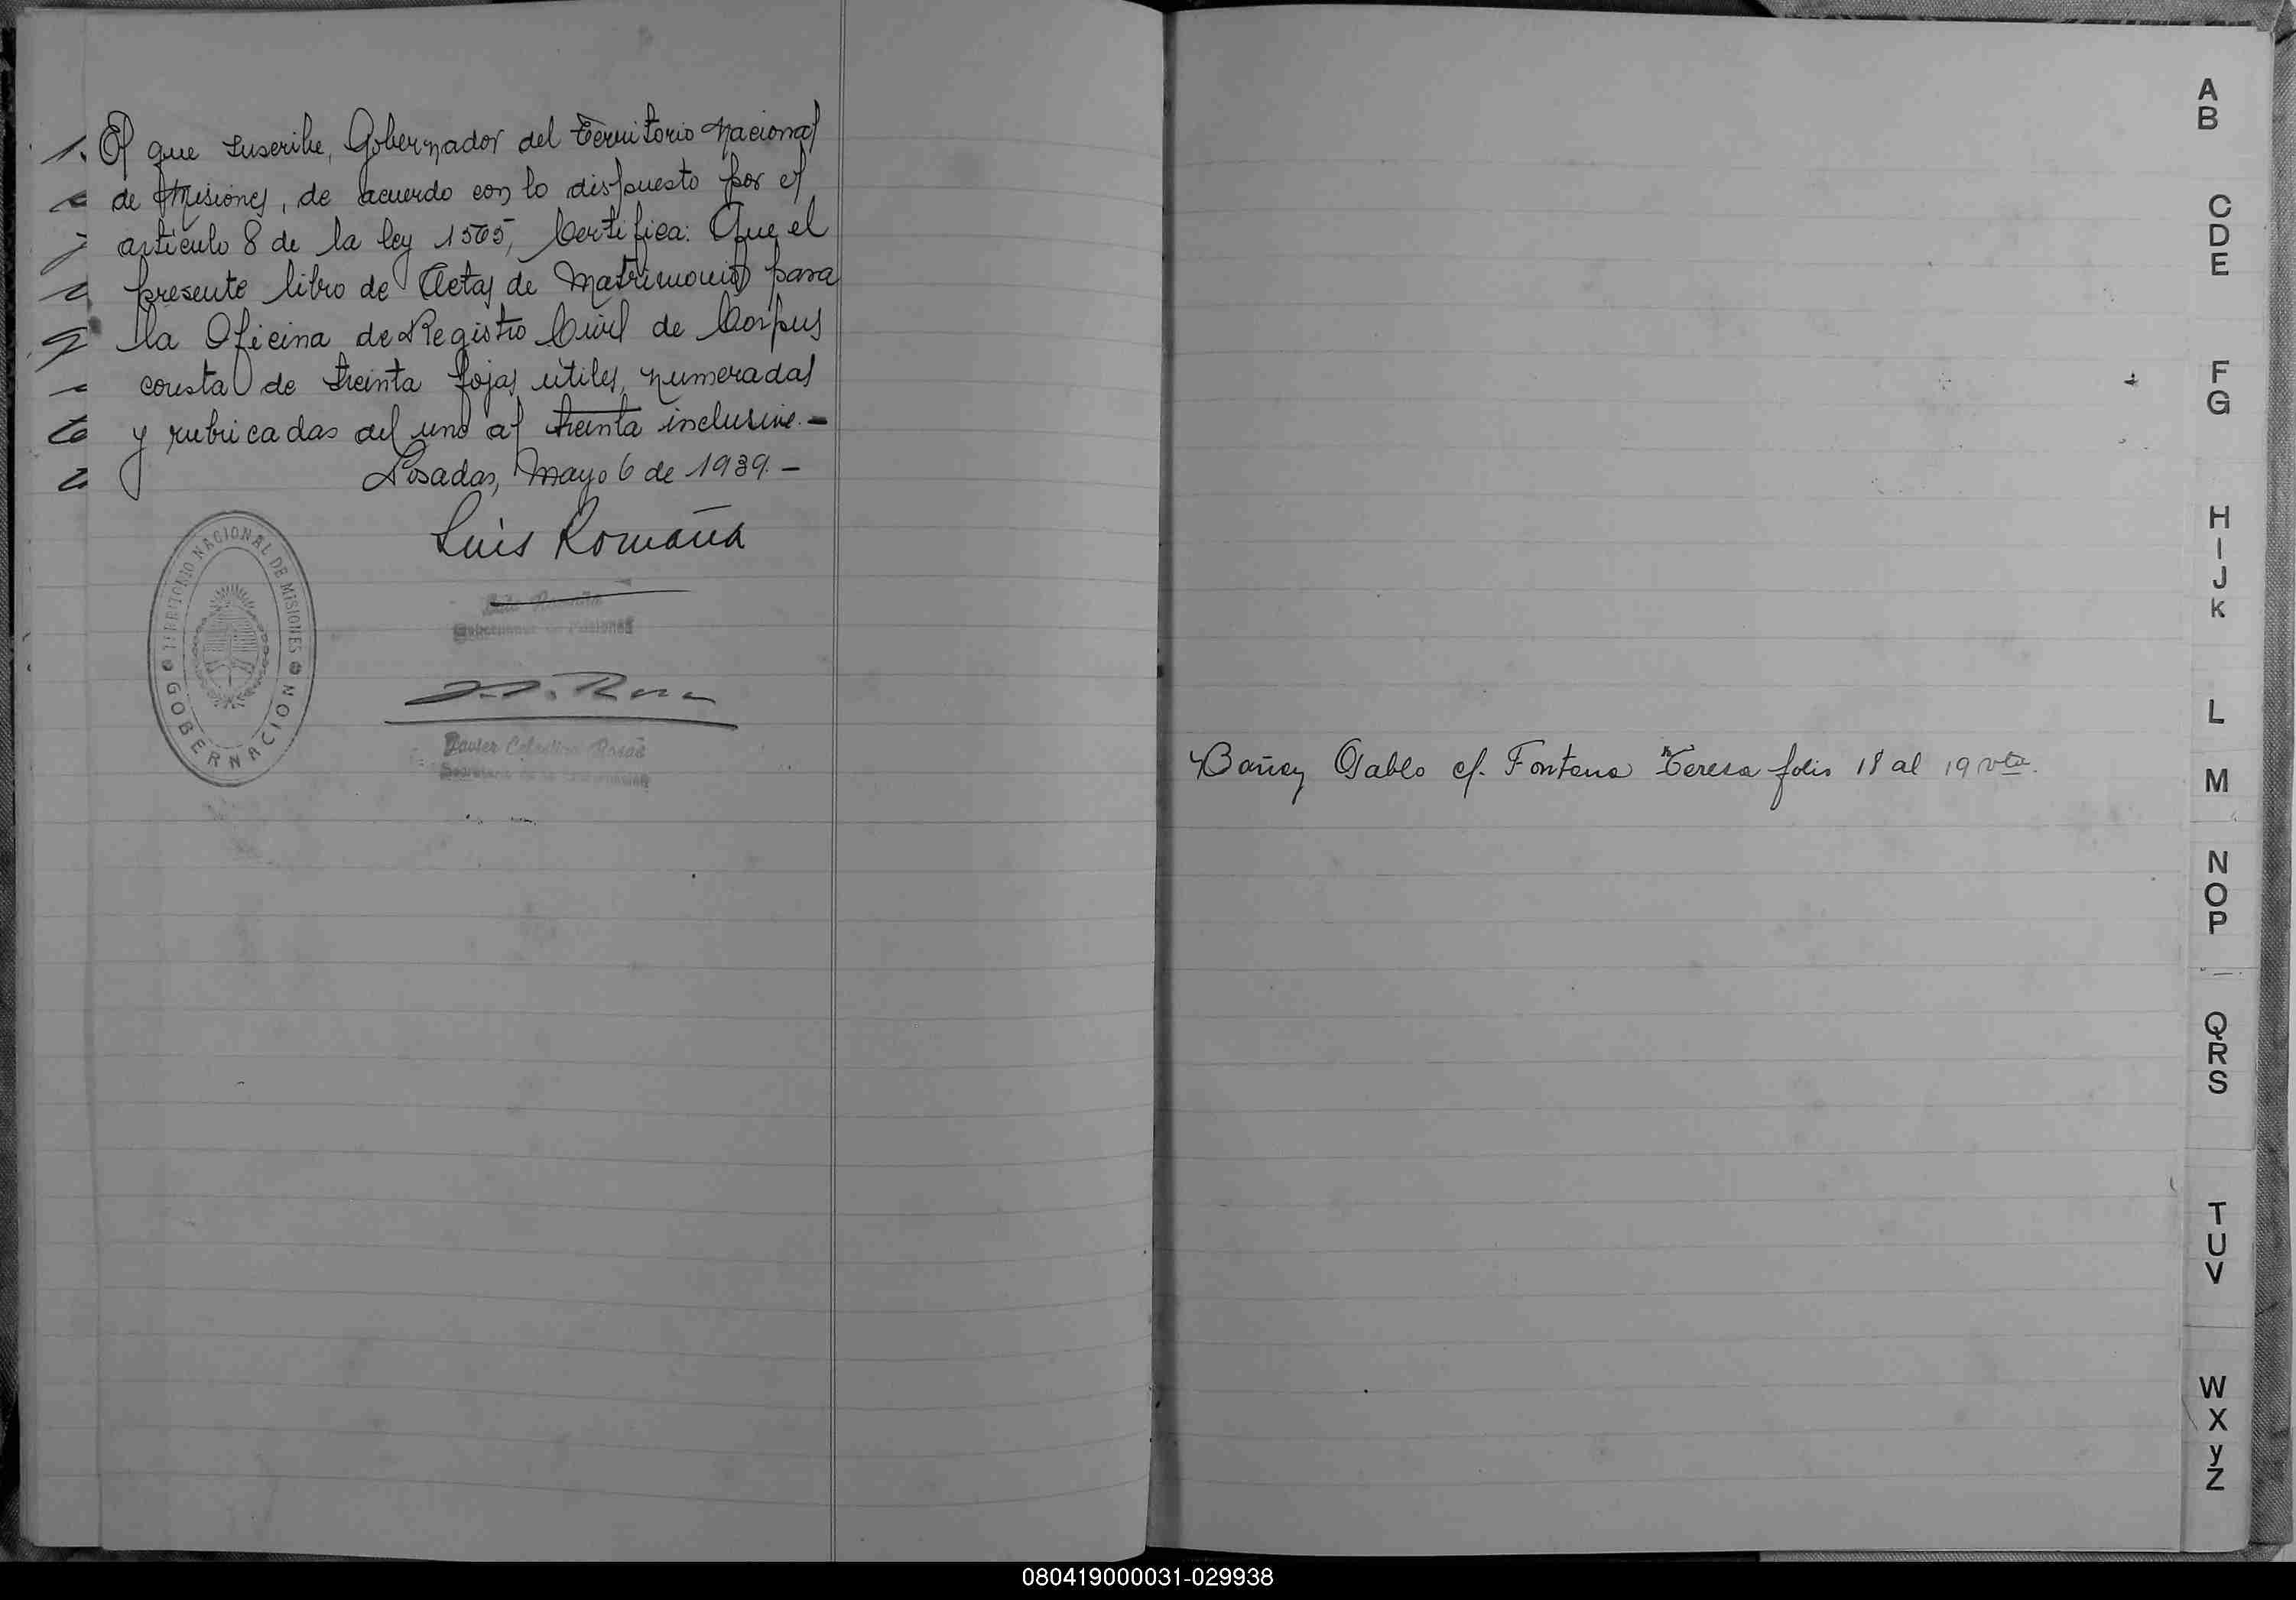 El que suscribe, Gobernador del Territorio Nacional
de Misiones, de acuerdo con lo dispuesto por el
artículo 8 de la ley 1565, Certifica: Que el
presente libro de Actas de Matrimonios para
la Oficina de Registro Civil de Corpus
consta de treinta fojas útiles, numeradas
y rubricadas del uno al treinta inclusive.-
Posadas, Mayo 6 de 1939.-
Luis Romaña
TERRITORIO NACIONAL DE MISIONES
GOBERNACION
Luis Romaña
Gobernador de Misiones
Javier Celestino Rosas
Secretario de la Gobernación
Pablo c/. Fontana Teresa folio 18 al 19 vta.
A
B
C
D
E
F
G
H
I
J
K
L
M
N
O
P
Q
R
S
T
U
V
W
X
y
Z
080419000031-029938